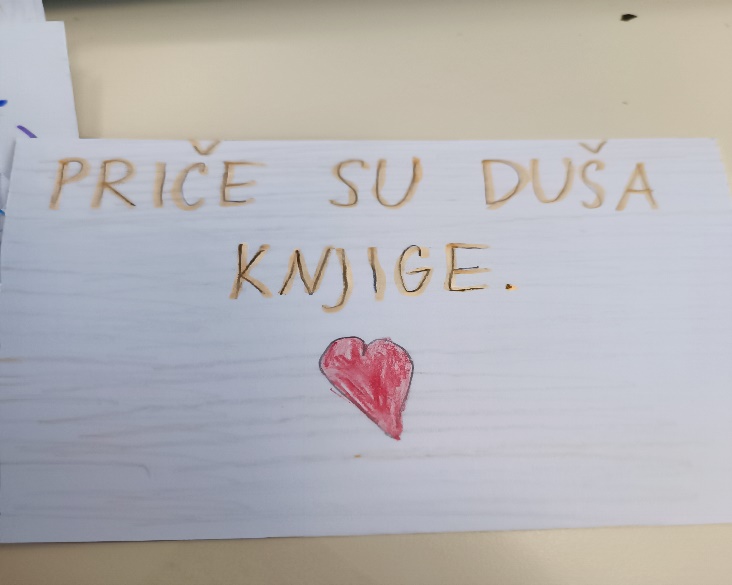 PRIČE SU DUŠA
KNJIGE.